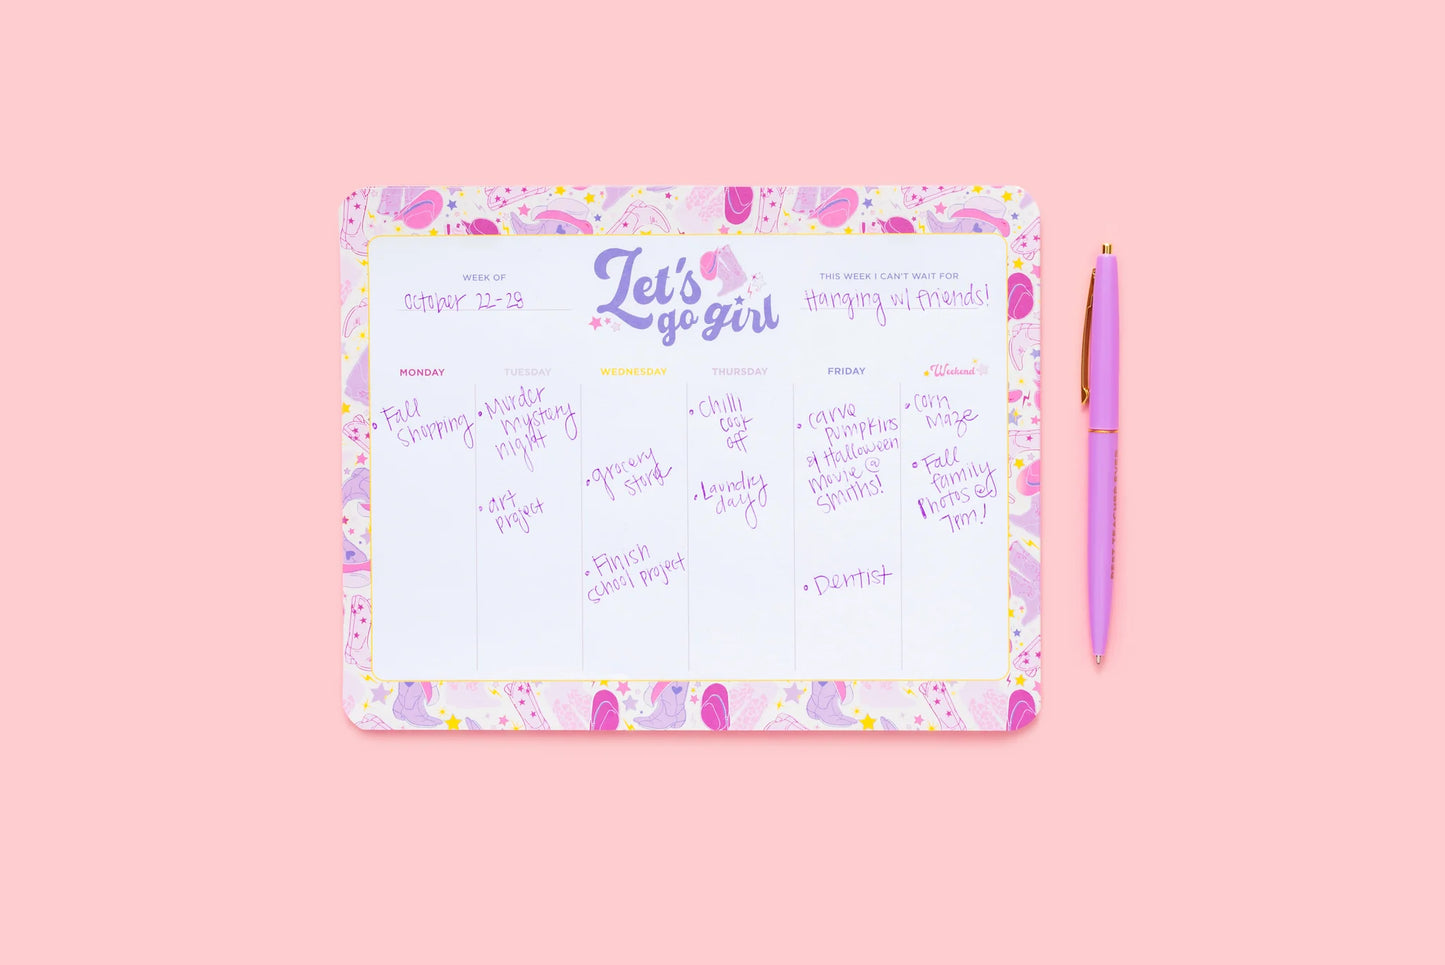 WEEK OF
October 22-28
Let's
go girl
THIS WEEK I CAN'T WAIT FOR
Hanging w/ friends!
MONDAY
• Fall
shopping
TUESDAY
• Murder
mystery
night
• art
project
WEDNESDAY
• grocery
store
• Finish
school project
THURSDAY
• Chilli
cook
off
• Laundry
day
FRIDAY
• carve
pumpkins
& Halloween
movie @
Smiths!
• Dentist
Weekend
• Corn
Maze
• Fall
family
photos @
7pm!
BEST TEACHER EVER